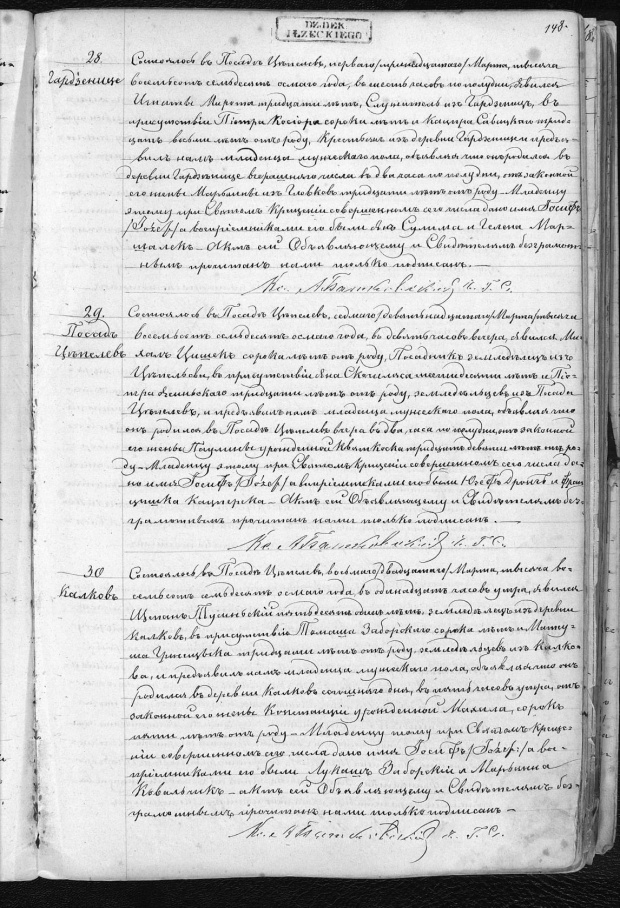 DZ.DEK
IŁŻECKIEGO
148.
28.
Гардзеница
Состоялось въ Посадѣ Цѣпелевъ, перваго /тринадцатаго/ Марта, тысяча
восемьсотъ семьдесятъ осмаго года, въ шесть часовъ по полудни, явился
Игнатій тридцати лѣтъ, Служитель изъ Гардзеницъ, въ
присутствіи Піотра Косіора сорока лѣтъ и Кацпра Савицкаго тридцать
восьми лѣтъ отъ роду, Крестьянъ изъ деревни Гардзеницы и предъявилъ
намъ младенца мужескаго пола, объявляя что онъ родился въ
деревни Гардзенице вчерашняго числа въ два часа по полудни, отъ законной
его жены Маріанны изъ Гловковъ тридцати лѣтъ отъ роду – Младенцу
этому при Святомъ Крещеніи совершенномъ сего числа дано имя Іосифъ
/Józef/ а воспріемниками его были Янъ Сулима и Гелена Мар-
щалекъ – Актъ сей Объявляющему и Свидѣтелямъ безграмот-
нымъ прочитанъ нами только подписанъ. —
Кс. А
29.
Посадъ
Цѣпелевъ
Состоялось въ Посадѣ Цѣпелевъ, седмаго /девятнадцатаго/ Марта /тысяча
восемьсотъ семьдесятъ осмаго года, въ девять часовъ вечера, явился Ми-
халъ Цишекъ сорока лѣтъ отъ роду, Посадникъ земледѣлецъ изъ
Цѣпельова, въ присутствіи Яна пятидесяти лѣтъ и Піо-
тра тридцати лѣтъ отъ роду, земледѣльцевъ изъ Посада
Цѣпелевъ, и предъявилъ намъ младенца мужескаго пола, объявляя что
онъ родился въ Посадѣ Цѣпелевъ вчера въ два часа по полудни, отъ законной
его жены Паулины урожденной тридцать девяти лѣтъ отъ ро-
ду – Младенцу этому при Святомъ Крещеніи совершенномъ сего числа да-
но имя Іосифъ /Józef/ а воспріемниками его были Юсефъ Дронгъ и Фран-
цишка Кацперка – Актъ сей Объявляющему и Свидѣтелямъ без-
грамотнымъ прочитанъ нами только подписанъ. —
Кс. А
30
Калковъ
Состоялось въ Посадѣ Цѣпелевъ, восьмаго /двадцатаго/ Марта, тысяча во-
семьсотъ семьдесятъ осмаго года, въ одинадцать часовъ утра, явился
Щепанъ пятьдесятъ одинъ лѣтъ, земледѣлецъ изъ деревни
Калковъ, въ присутствіи Томаша Заборскаго сорока лѣтъ и Матеу-
ша тридцати лѣтъ отъ роду, земледѣльцевъ изъ Калко-
ва, и предъявилъ намъ младенца мужескаго пола, объявляя что онъ
родился въ деревни Калковъ сегодняго дня, въ пять часовъ утра, отъ
законной его жены Констанціи урожденной Махила, сорокъ
пяти лѣтъ отъ роду – Младенцу тому при Святомъ Креще-
ніи совершенномъ сего числа дано имя Іосифъ /Józef/ а во-
спріемниками его были Лукашъ Заборскій и Марьянна
Ковальчикъ – актъ сей Объявляющему и Свидѣтелямъ без-
грамотнымъ прочитанъ нами только подписанъ –
Кс. А